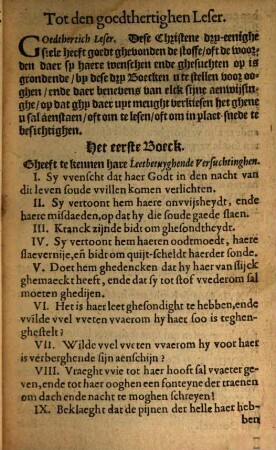 Tot den goedthertighen Leser.
Goedthertich Leser. Dese Christene dry-eenighe
siele heeft goedt ghevonden de stoffe/ oft de woor-
den daer sy haere wenschen ende ghesuchten op is
grondende/ by dese dry Boecken u te stellen voor oo-
ghen/ ende daer benevens van elck sijne aenwijsin-
ghe/ op dat ghy daer uyt meught verkiesen het ghene
u sal aenstaen/ oft om te lesen/ oft om in plaet-snede te
besichtighen.
Het eerste Boeck.
Gheeft te kennen hare Leetbetuyghende Versuchtinghen.
I. Sy vvenscht dat haer Godt in den nacht van
dit leven soude vvillen komen verlichten.
II. Sy vertoont hem haere onvvijsheydt, ende
haere misdaeden, op dat hy die soude gaede slaen.
III. Kranck zijnde bidt om ghesondtheydt.
IV. Sy vertoont hem haeren oodtmoedt, haere
slaevernije, eñ bidt om quijt-scheldt haerder sonde.
V. Doet hem ghedencken dat hy haer van slijck
ghemaeckt heeft, ende dat sy tot stof vvederom sal
moeten ghedijen.
VI. Het is haer leet ghesondight te hebben, ende
vvilde vvel vveten vvaerom hy haer soo is teghen-
ghestelt?
VII. Wilde vvel vveten vvaerom hy voor haet
is verberghende sijn aenschijn?
VIII. Vraeght vvie tot haer hooft sal vvaeter ge-
ven, ende tot haer ooghen een fonteyne der traenen
om dach ende nacht te moghen schreyen!
IX. Beklaeght dat de pijnen der helle haer heb-
ben